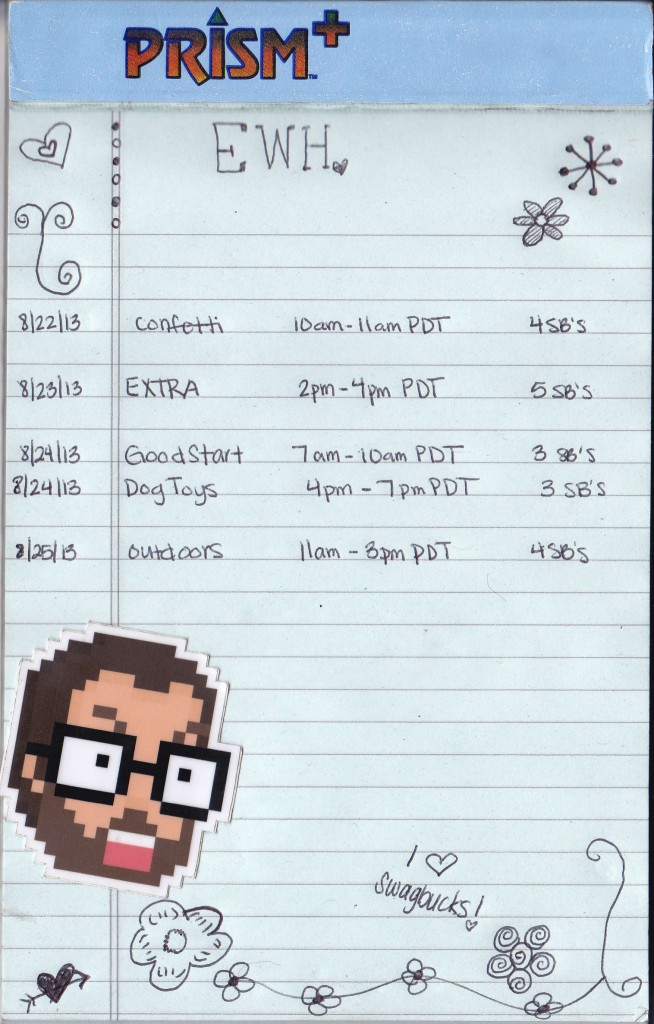 PRISM+™
EWH
8/22/13 Confetti 10am-11am PDT 4SB'S
8/23/13 EXTRA 2pm-4pm PDT 5 SB'S
8/24/13 GoodStart 7am-10am PDT 3 SB'S
8/24/13 DogToys 4pm - 7pm PDT 3 SB'S
8/25/13 outdoors 11am - 3pm PDT 4SB'S
I ♡
swagbucks!